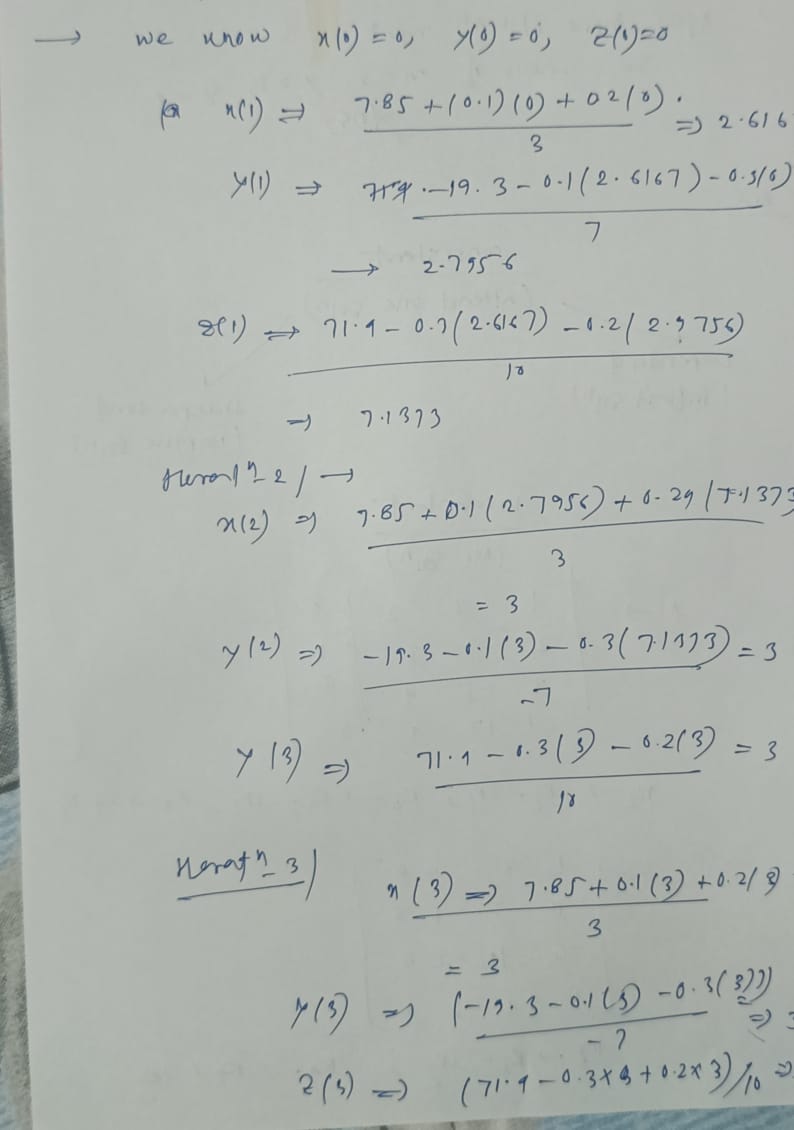 → we know x(0) = 0, y(0) = 0, z(0) = 0
x(1) ⇒ 7.85 + (0.1)(0) + 02(0) / 3 ⇒ 2.616
y(1) ⇒ -19.3 - 0.1(2.6167) - 0.3(0) / 7
→ 2.7956
z(1) ⇒ 71.4 - 0.3(2.6167) - 0.2(2.9756) / 10
⇒ 7.1373
Iteratn - 2) →
x(2) ⇒ 7.85 + 0.1(2.7956) + 0.29(7.1373 / 3
= 3
y(2) ⇒ -19.3 - 0.1(3) - 0.3(7.1373) / -7 = 3
y(3) ⇒ 71.4 - 0.3(3) - 0.2(3) / 10 = 3
Iteratn - 3)
x(3) ⇒ 7.85 + 0.1(3) + 0.2(3) / 3
= 3
y(3) ⇒ (-19.3 - 0.1(3) - 0.3(3)) / -7 ⇒
z(3) ⇒ (71.4 - 0.3×3 + 0.2×3)/10 ⇒